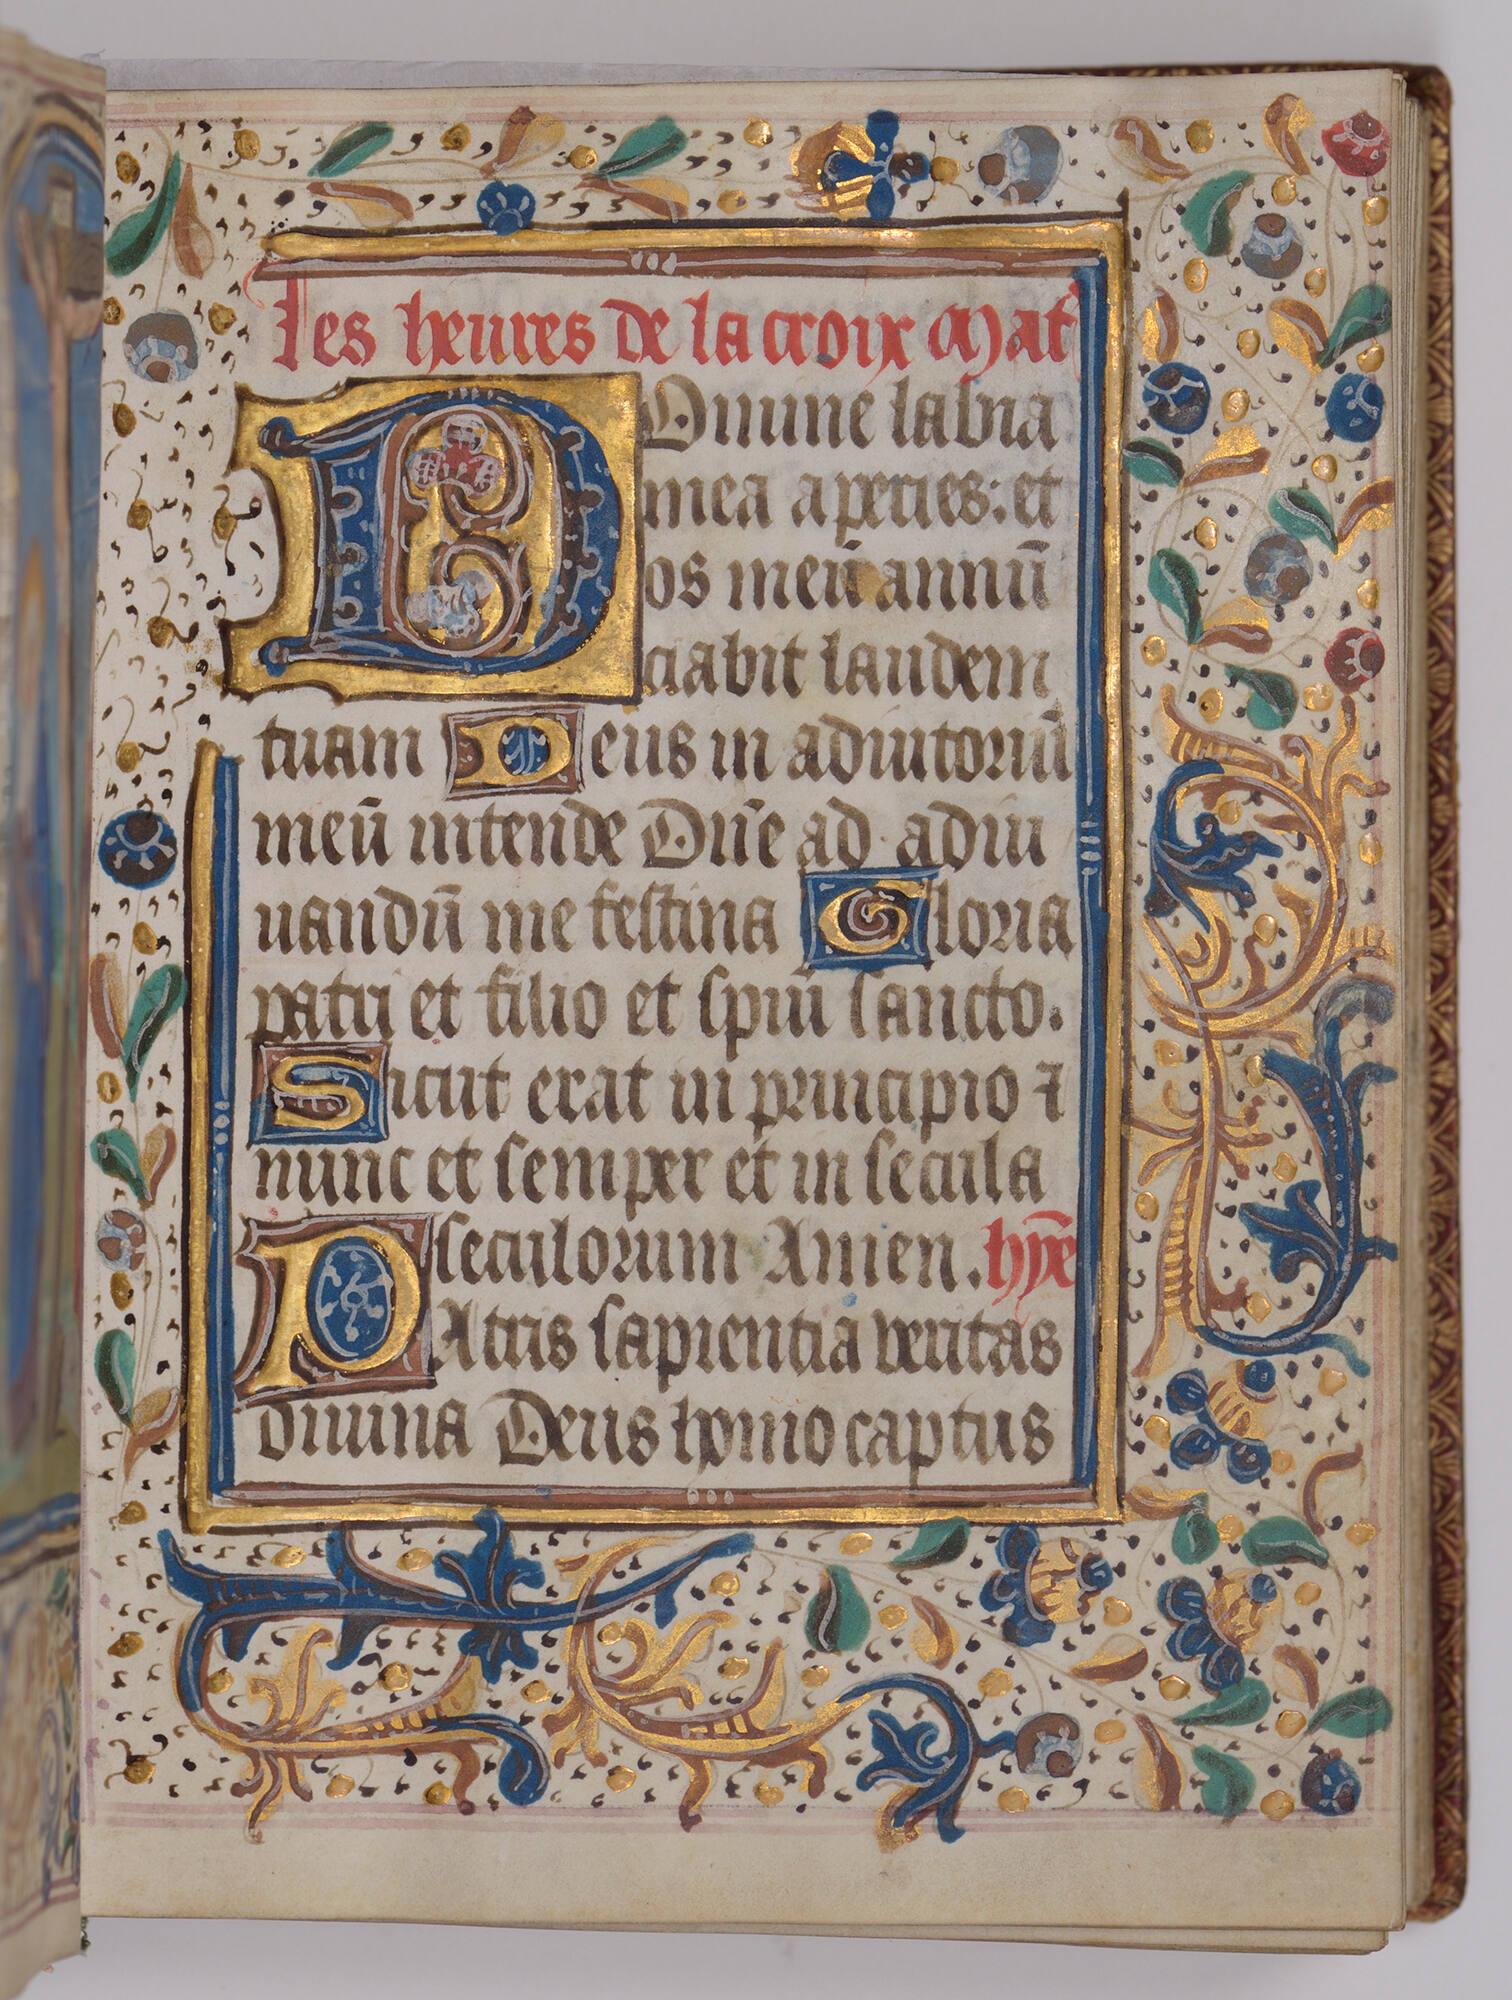 les heures de la croix Mat
DOmine labia
mea aperies: et
os meū annū
ciabit laudem
tuam Deus in adiutoriū
meū intende Dn̄e ad adiu
uandū me festina Gloria
patri et filio et spūi sancto.
Sicut erat in principio ⁊
nunc et semper et in secula
seculorum Amen. hȳe
PAtris sapientia veritas
diuina Deus homo captus